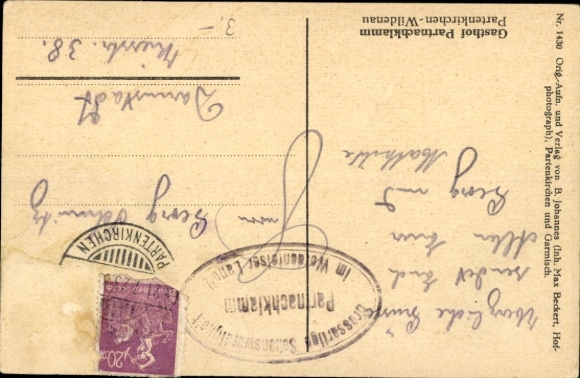 Gasthof Partnachklamm
Partenkirchen-Wildenau
Nr. 1430 Orig.-Aufn. und Verlag von B. Johannes (Inh. Max Beckert, Hof-
photograph), Partenkirchen und Garmisch.
Herzliche Grüsse
sendet Euch
Allen Eure
Georg und
Mathilde
Georg
Darmstadt
38.
3.-
PARTENKIRCHEN
Grossartige Sehenswürdigkeit
Partnachklamm
im Wettersteingebirge
20